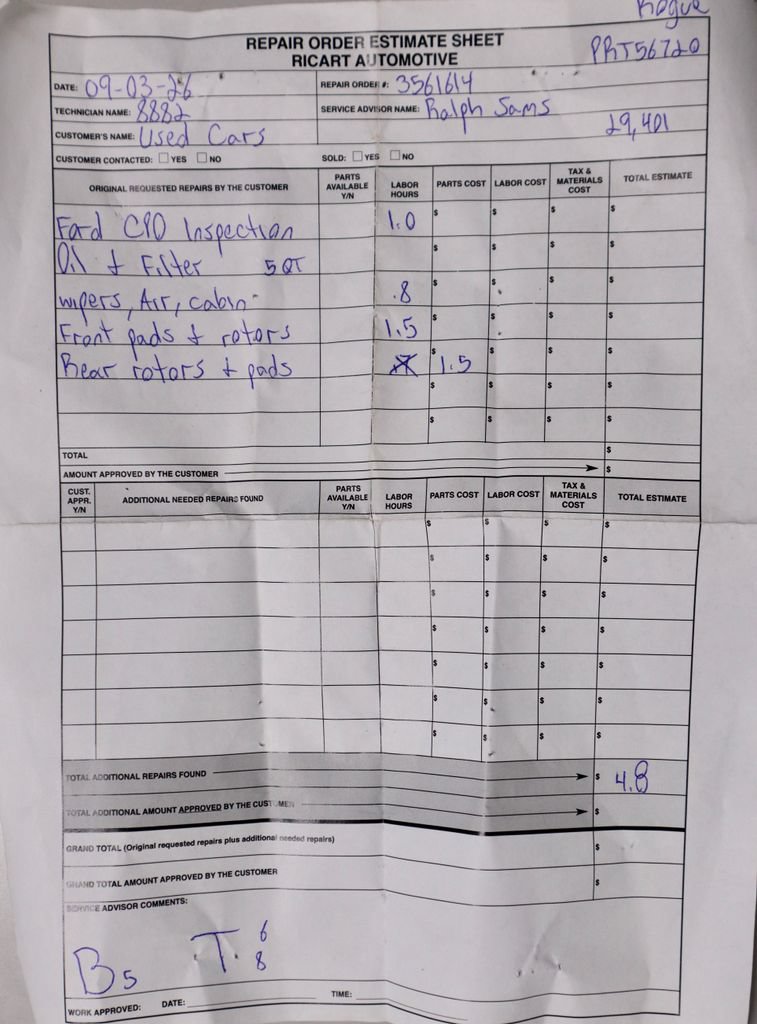 Rogue
REPAIR ORDER ESTIMATE SHEET
RICART AUTOMOTIVE
PRT56720
DATE: 09-03-26
REPAIR ORDER #: 3561614
TECHNICIAN NAME: 8882
SERVICE ADVISOR NAME: Ralph Sams
29,401
CUSTOMER'S NAME: Used Cars
CUSTOMER CONTACTED: YES NO SOLD: YES NO
ORIGINAL REQUESTED REPAIRS BY THE CUSTOMER PARTS AVAILABLE Y/N LABOR HOURS PARTS COST LABOR COST TAX & MATERIALS COST TOTAL ESTIMATE
Ford CPO Inspection 1.0 $ $ $ $
Oil & Filter 5 QT $ $ $ $
wipers, Air, cabin .8 $ $ $ $
Front pads & rotors 1.5 $ $ $ $
Rear rotors & pads $ 1.5 $ $ $
$ $ $ $
$ $ $ $
TOTAL $
AMOUNT APPROVED BY THE CUSTOMER $
CUST. APPR. Y/N ADDITIONAL NEEDED REPAIRS FOUND PARTS AVAILABLE Y/N LABOR HOURS PARTS COST LABOR COST TAX & MATERIALS COST TOTAL ESTIMATE
$ $ $ $
$ $ $ $
$ $ $ $
$ $ $ $
$ $ $ $
$ $ $ $
$ $ $ $
TOTAL ADDITIONAL REPAIRS FOUND $ 4.8
TOTAL ADDITIONAL AMOUNT APPROVED BY THE CUSTOMER $
GRAND TOTAL (Original requested repairs plus additional needed repairs) $
GRAND TOTAL AMOUNT APPROVED BY THE CUSTOMER $
SERVICE ADVISOR COMMENTS:
B5 T 6
8
WORK APPROVED: DATE: TIME: